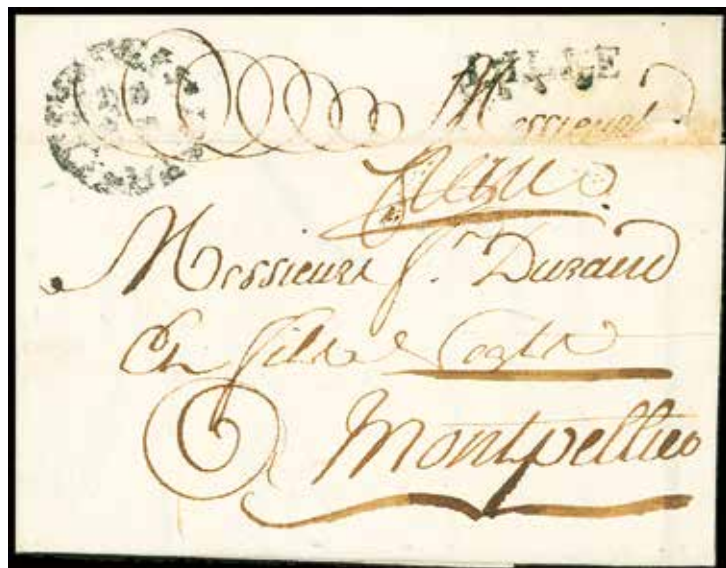 LILLE
Messieurs
Messieurs Jn. Durand
Et fils &
à Montpellier